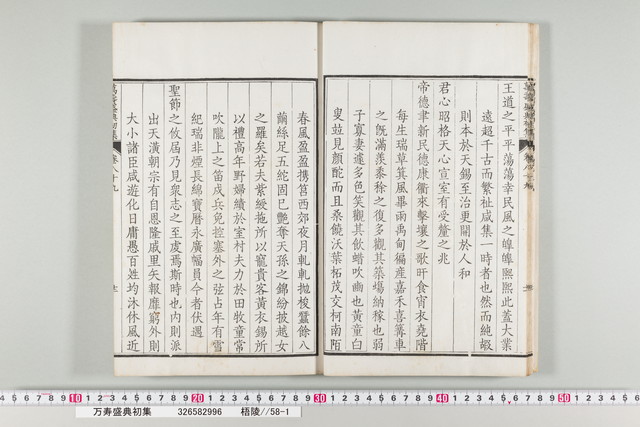 王道之平平蕩蕩幸民風之皥皥熙熙此蓋大業
遠超千古而繁祉咸集一時者也然而純嘏
則本於天錫至治更關於人和
君心昭格天心宣室有受釐之兆
帝德聿新民德康衢來擊壤之歌旰食宵衣堯階
每生瑞草箕風畢雨禹甸徧產嘉禾喜篝車
之旣滿羨黍稌之復多觀其築場納稼也弱
子寡妻遽多色笑觀其飲蜡吹豳也黃童白
叟竝見顏酡而且桑饒沃葉柘茂交柯南陌
春風盈盈携筥西郊夜月軋軋抛梭蠶餘八
繭絲足五紽固已艷奪天孫之錦紛披越女
之羅矣若夫紫綬拖所以寵貴客黃衣錫所
以禮高年野婦績於室村夫力於田牧童常
吹隴上之笛戍兵免控塞外之弦占年有雪
紀瑞非煙長綿寶曆永廣幅員今者伏遇
聖節之攸屆乃見衆志之至虔焉斯時也内則派
出天潢朝宗有自恩隆戚里矢報靡窮外則
大小諸臣咸遊化日庸愚百姓均沐休風近
萬壽盛典初集
卷八十九
10 20 30 40 50
万寿盛典初集 326582996 梧陵//58-1